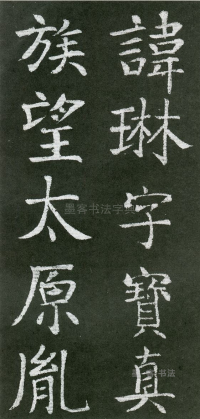 諱琳字寶真
族望太原胤
墨客书法字典
墨客书法